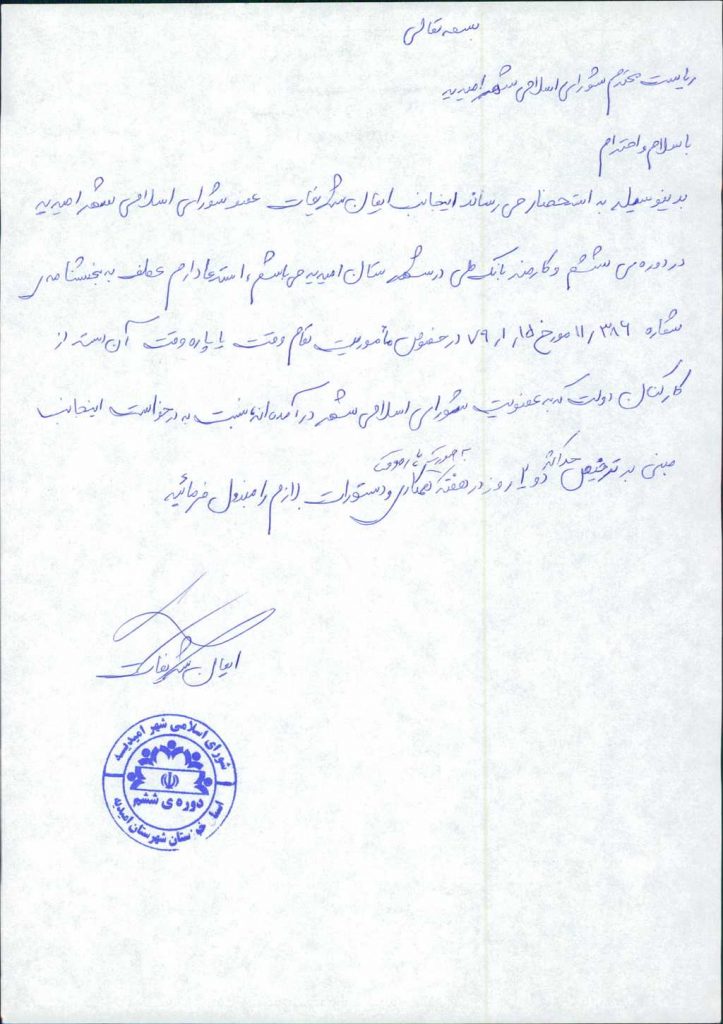 بسمه تعالی
ریاست محترم شورای اسلامی شهر امیدیه
با سلام و احترام
بدینوسیله به استحضار می رساند اینجانب ایمان شریفات عضو شورای اسلامی شهر امیدیه
در دوره ی ششم و کارمند بانک ملی در شهرستان امیدیه می باشم، استدعا دارم عطف به بخشنامه ی
شماره ۱۱٫۳۸۶ مورخ ۷۹٫۱٫۱۵ در خصوص مأموریت تمام وقت یا پاره وقت آن دسته از
کارکنان دولت که به عضویت شورای اسلامی شهر در آمده اند، نسبت به درخواست اینجانب
به صورت پاره وقت
مبنی بر ترخیص حداکثر دو ۲ روز در هفته همکاری و دستورات لازم را مبذول فرمائید
ایمان شریفات
شورای اسلامی شهر امیدیه
دوره ی ششم
استان خوزستان شهرستان امیدیه